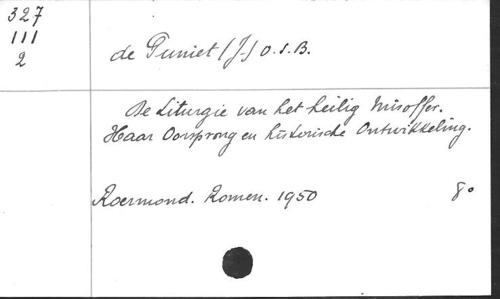 327
111
2
de Puniet (J.) O.S.B.
De Liturgie van het heilig misoffer.
Haar Oorsprong en historische Ontwikkeling.
Roermond. Romen. 1950 8°